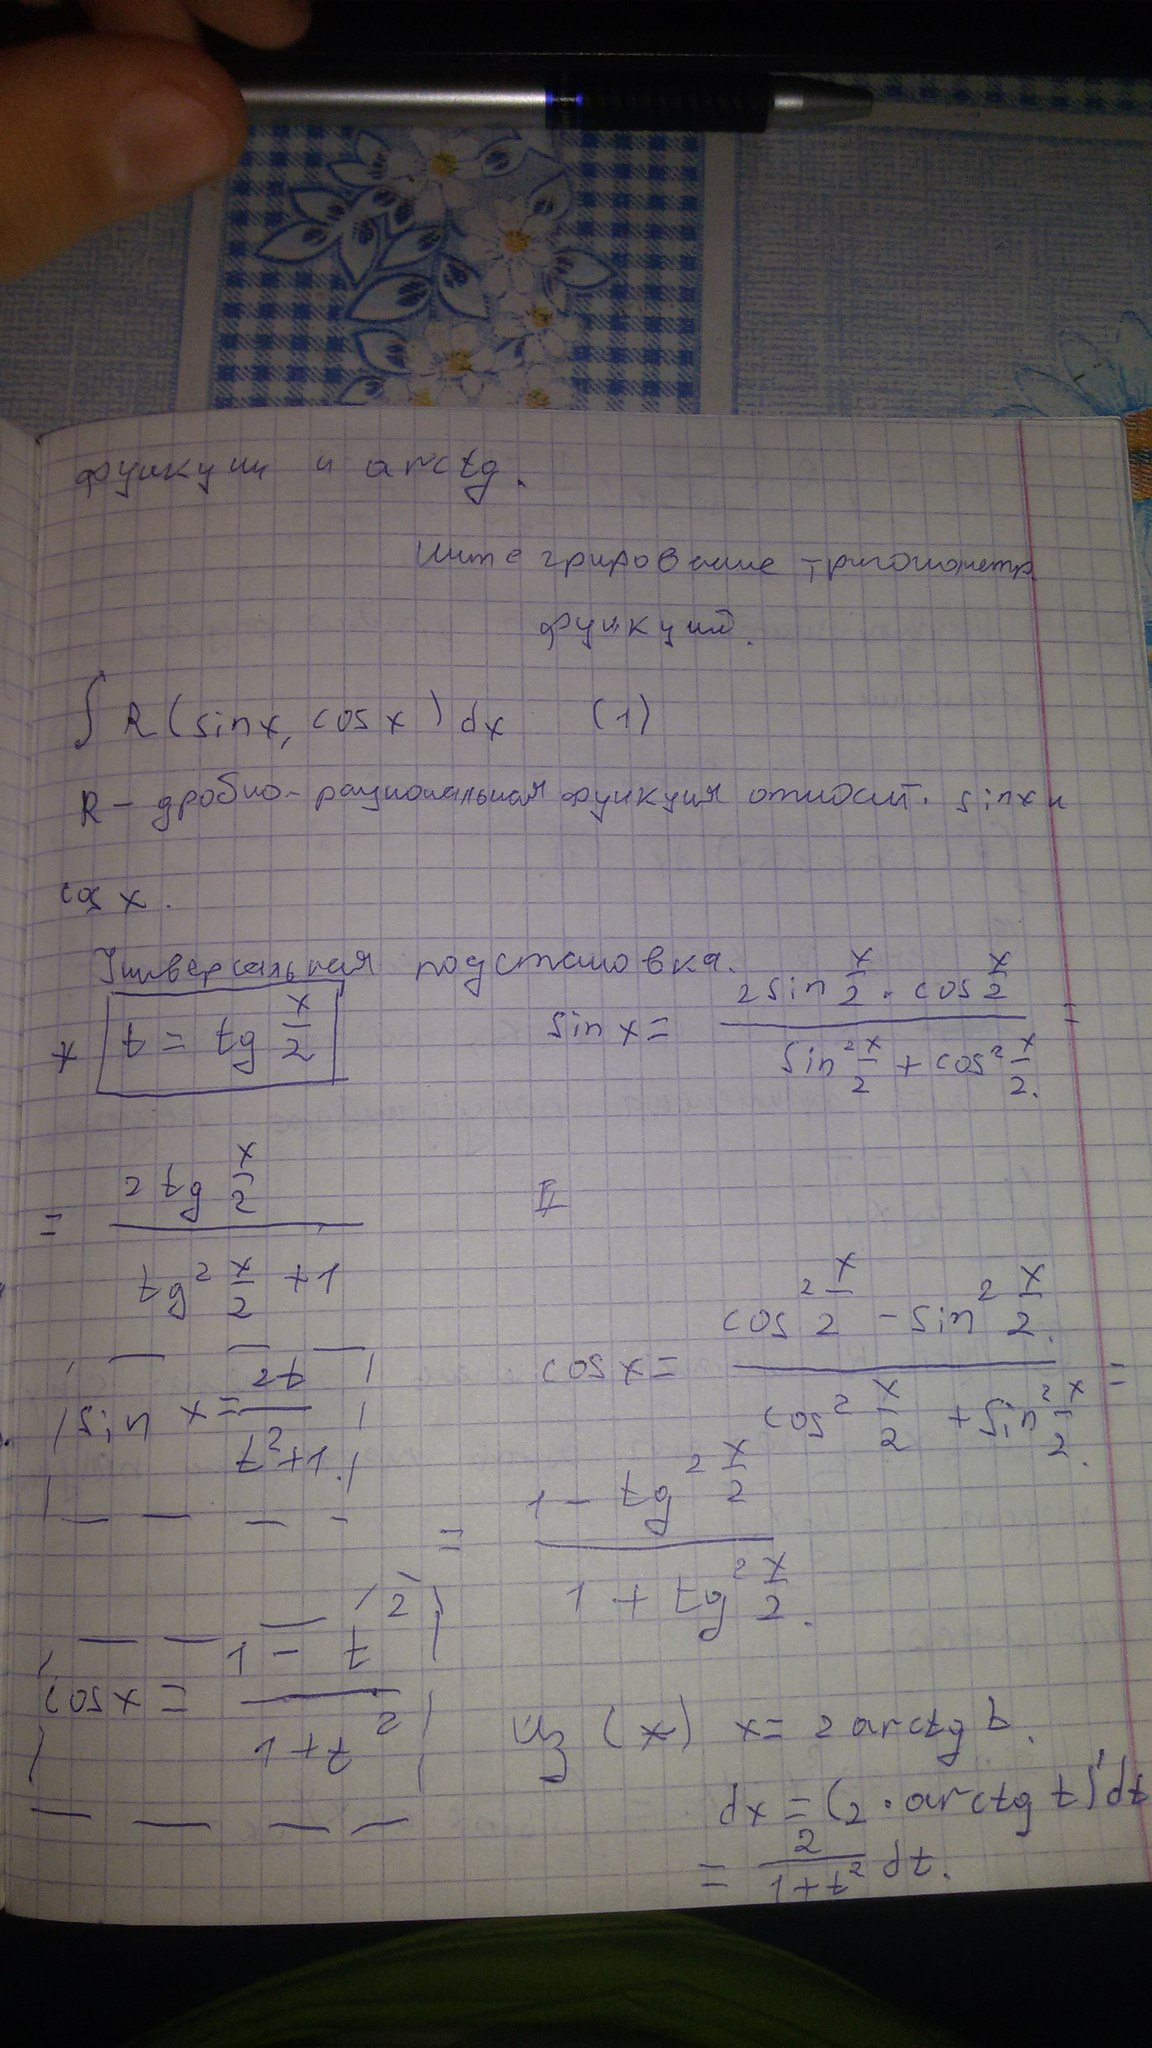 функции и arctg.
Интегрирование тригонометр.
функций.
∫ R (sin x, cos x) dx (1)
R – дробно-рациональная функция относит. sin x и
cos x.
Универсальная подстановка.
* t = tg x/2 sin x = (2 sin x/2 · cos x/2) / (sin² x/2 + cos² x/2) =
= (2 tg x/2) / (tg² x/2 + 1)
sin x = 2t / (t² + 1) cos x = (cos² x/2 – sin² x/2) / (cos² x/2 + sin² x/2) =
= (1 – tg² x/2) / (1 + tg² x/2)
cos x = (1 – t²) / (1 + t²) Из (*) x = 2 arctg t.
dx = (2 · arctg t)' dt
= 2 / (1 + t²) dt.